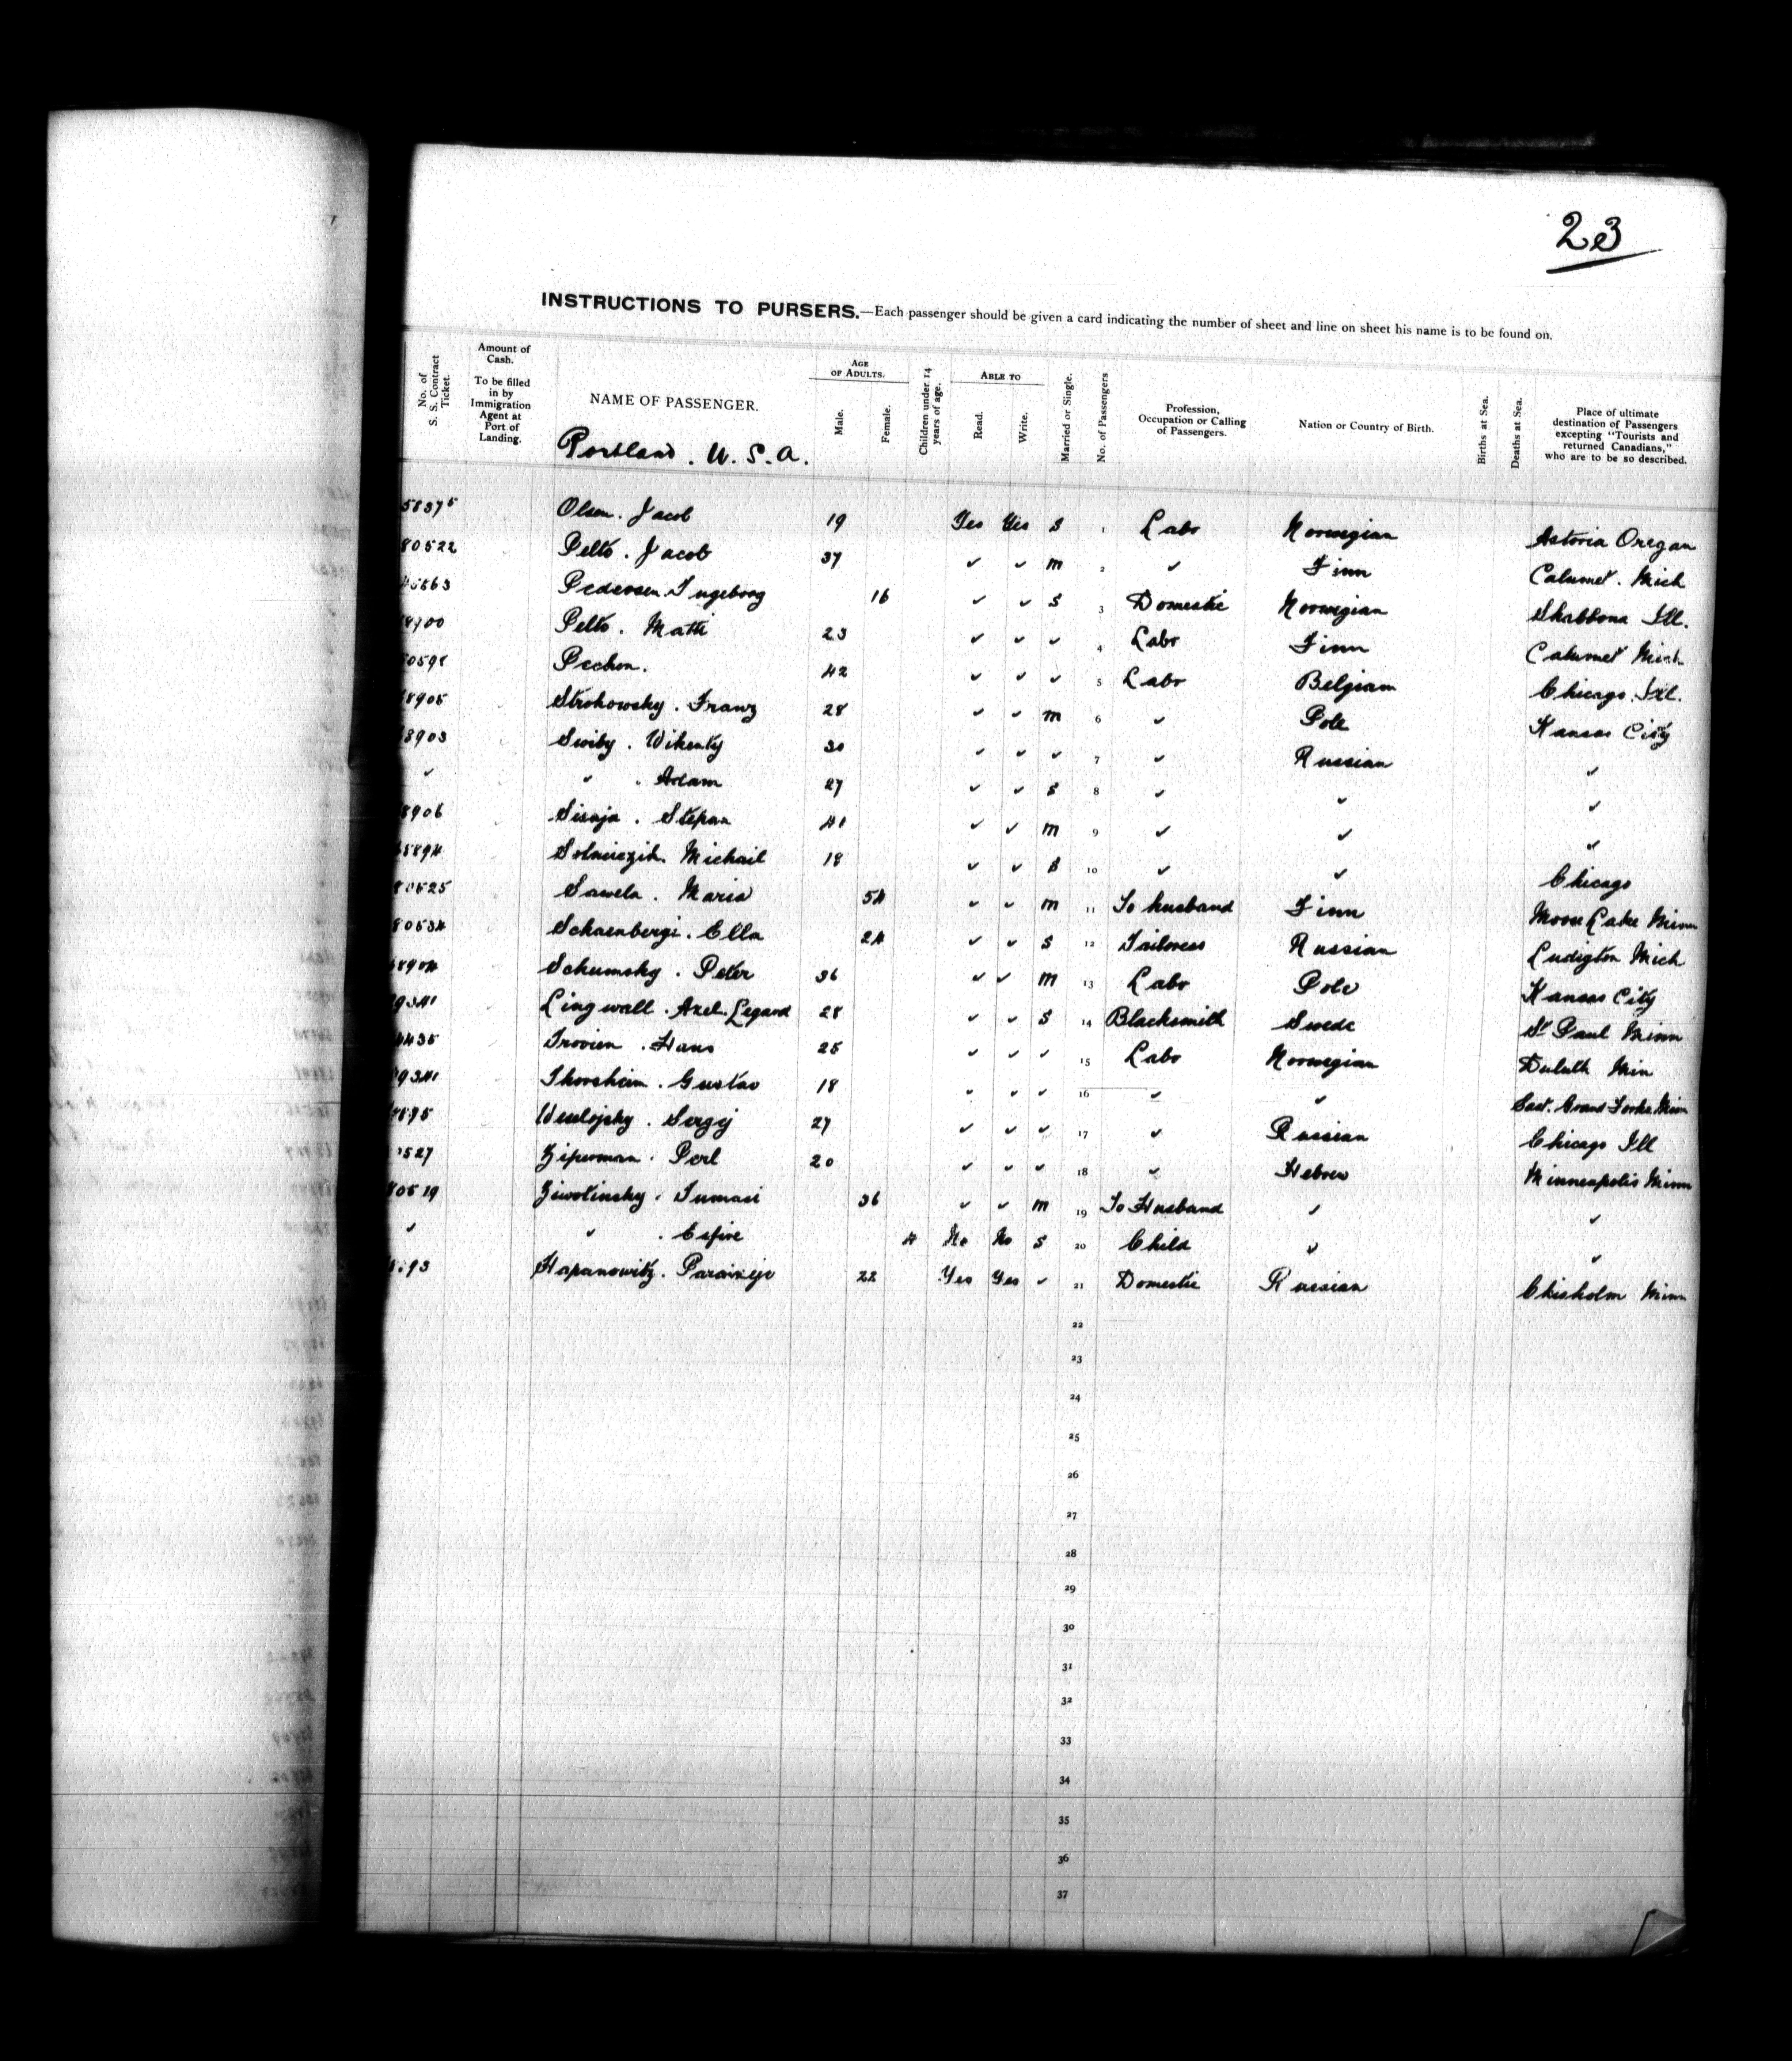 23
INSTRUCTIONS TO PURSERS.—Each passenger should be given a card indicating the number of sheet and line on sheet his name is to be found on.
No. of S. S. Contract Ticket.
Amount of Cash. To be filled in by Immigration Agent at Port of Landing.
NAME OF PASSENGER.
AGE OF ADULTS.
Male.
Female.
Children under 14 years of age.
ABLE TO
Read.
Write.
Married or Single.
No. of Passengers
Profession, Occupation or Calling of Passengers.
Nation or Country of Birth.
Births at Sea.
Deaths at Sea.
Place of ultimate destination of Passengers excepting "Tourists and returned Canadians," who are to be so described.
Portland. U. S. A.
58375 Olsen. Jacob 19 Yes Yes S 1 Labr Norwegian Astoria Oregan
80522 Pelto. Jacob 37 ✓ ✓ m 2 ✓ Finn Calumet. Mich
Pedersen Ingeborg 16 ✓ ✓ S 3 Domestic Norwegian Shabbona Ill.
8900 Pelto. Matti 23 ✓ ✓ ✓ 4 Labr Finn Calumet Mich
Pechon. 42 ✓ ✓ ✓ 5 Labr Belgian Chicago. Ill.
8905 Strohowsky. Franz 28 ✓ ✓ m 6 ✓ Pole Kansas City
8903 Swiby. Wikenty 30 ✓ ✓ ✓ 7 ✓ Russian ✓
✓ ✓ . Adam 27 ✓ ✓ S 8 ✓ ✓ ✓
8906 Sisaja. Stepan 41 ✓ ✓ m 9 ✓ ✓ ✓
Michail 18 ✓ ✓ S 10 ✓ ✓ Chicago
80525 Sawela. Maria 54 ✓ ✓ m 11 To husband Finn Moose Lake Minn
80534 Schaenbergi. Ella 24 ✓ ✓ S 12 Tailoress Russian Ludigton Mich
8904 Schumsky. Peter 36 ✓ ✓ m 13 Labr Pole Kansas City
9341 Lingwall. Axel. Legard 28 ✓ ✓ S 14 Blacksmith Swede St Paul Minn
4435 Trovien. Hans 25 ✓ ✓ ✓ 15 Labr Norwegian Duluth Min
9341 Thorsheim. Gustav 18 ✓ ✓ ✓ 16 ✓ ✓ East. Grand Forks. Minn
895 Weselojsky. Sergij 27 ✓ ✓ ✓ 17 ✓ Russian Chicago Ill
0527 Ziperman. Perl 20 ✓ ✓ ✓ 18 ✓ Hebrew Minneapolis Minn
80519 Ziwotinsky. Tumasi 36 ✓ ✓ m 19 To Husband ✓ ✓
✓ ✓ . Esfire 4 No No S 20 Child ✓ ✓
93 Hapanowitz. 22 Yes Yes ✓ 21 Domestic Russian Chisholm Minn
22
23
24
25
26
27
28
29
30
31
32
33
34
35
36
37